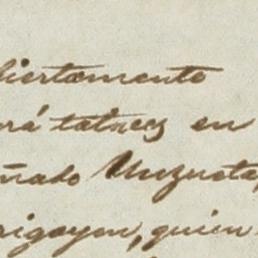 ciertamente
rá talvez en
ñado Unzueta,
rigoyen, quien